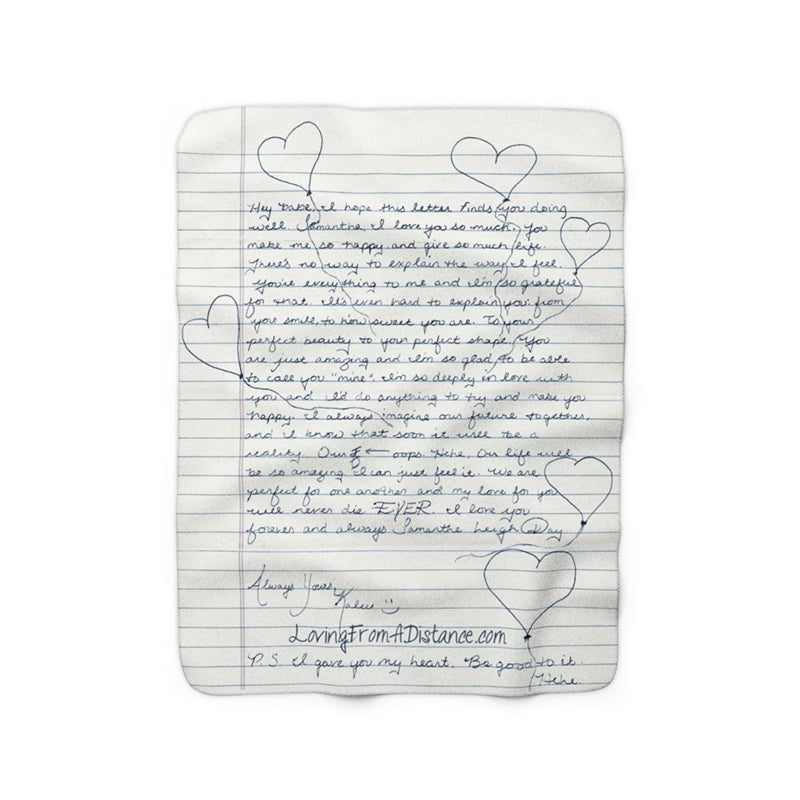 Hey babe, I hope this letter finds you doing
well. Samantha, I love you so much. You
make me so happy and give so much life.
There's no way to explain the way I feel.
You're everything to me and I'm so grateful
for that. It's even hard to explain you: from
your smile, to how sweet you are. To your
perfect beauty to your perfect shape. You
are just amazing and I'm so glad to be able
to call you "mine". I'm so deeply in love with
you and I'd do anything to try and make you
happy. I always imagine our future together,
and I know that soon it will be a
reality. Our ← oops. Hehe. Our life will
be so amazing I can just feel it. We are
perfect for one another and my love for you
will never die EVER. I love you
forever and always Samantha Leigh Day
Always Yours,
LovingFromADistance.com
P.S. I gave you my heart. Be good to it.
Hehe.